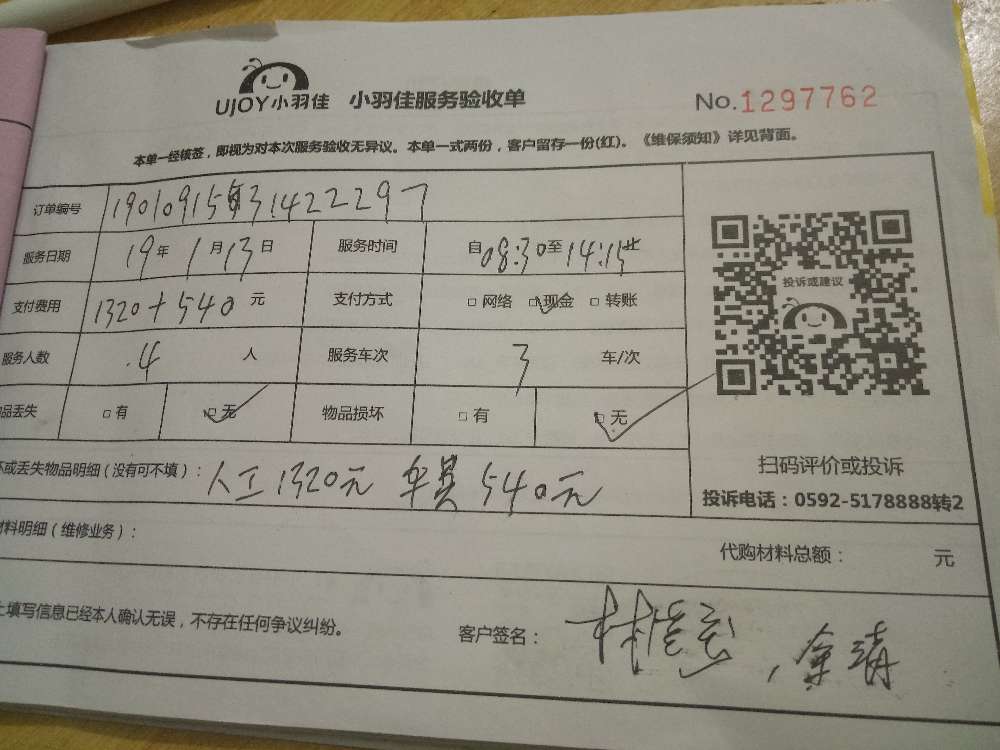 UJOY小羽佳 小羽佳服务验收单 No.1297762
本单一经核签，即视为对本次服务验收无异议。本单一式两份，客户留存一份(红)。《维保须知》详见背面。
订单编号 190109155314222297
服务日期 19年1月13日 服务时间 自08:30至14:15止
支付费用 1320+540元 支付方式 □网络 □现金 □转账
投诉或建议
服务人数 4人 服务车次 3车/次
品丢失 □有 □无 物品损坏 □有 □无
坏或丢失物品明细（没有可不填）：人工1320元 车费540元
扫码评价或投诉
投诉电话：0592-5178888转2
材料明细（维修业务）： 代购材料总额： 元
上填写信息已经本人确认无误，不存在任何争议纠纷。 客户签名：